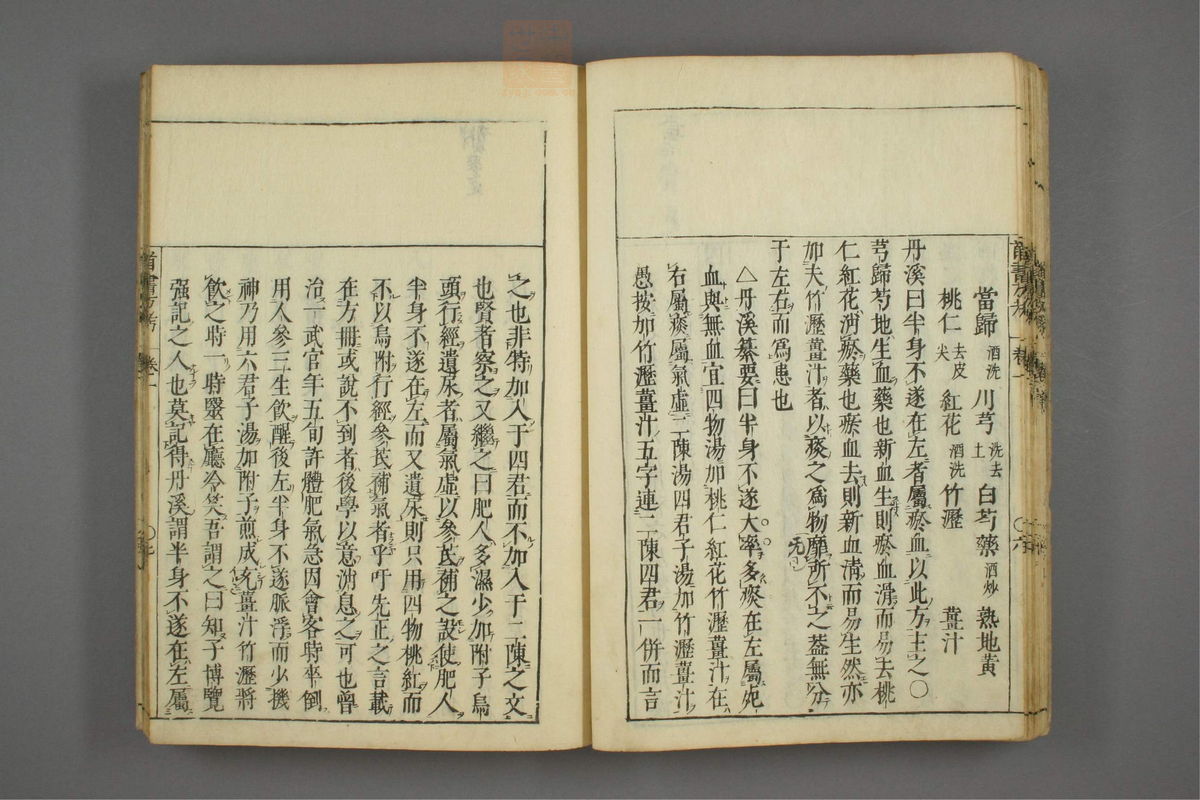 當歸酒洗 川芎洗去土 白芍藥酒炒 熟地黄
桃仁去皮尖 紅花酒洗 竹瀝 薑汁
丹溪曰半身不遂在左者屬瘀血以此方主之○
芎歸芍地生血藥也新血生則瘀血滑而易去桃
仁紅花消瘀藥也瘀血去則新血清而易生然亦
加夫竹瀝薑汁者以痰之爲物靡所不之盖無分
于左右而爲患也
△丹溪纂要曰半身不遂大率多痰在左屬死
血與無血宜四物湯加桃仁紅花竹瀝薑汁在
右屬痰屬氣虛二陳湯四君子湯加竹瀝薑汁
愚按加竹瀝薑汁五字連二陳四君一併而言
之也非特加入于四君而不加入于二陳之文
也賢者察之又繼之曰肥人多濕少加附子烏
頭行經遺尿者屬氣虛以參芪補之設使肥人
半身不遂在左而又遺尿則只用四物桃紅而
不以烏附行經參芪補氣者乎吁先正之言載
在方冊或說不到者後學以意消息之可也曾
治一武官年五旬許體肥氣急因會客時卒倒
用人參三生飲醒後左半身不遂脈浮而少機
神乃用六君子湯加附子煎成充薑汁竹瀝將
飲之時一時毉在廳冷笑吾謂之曰知子博覽
强記之人也莫記得丹溪謂半身不遂在左屬